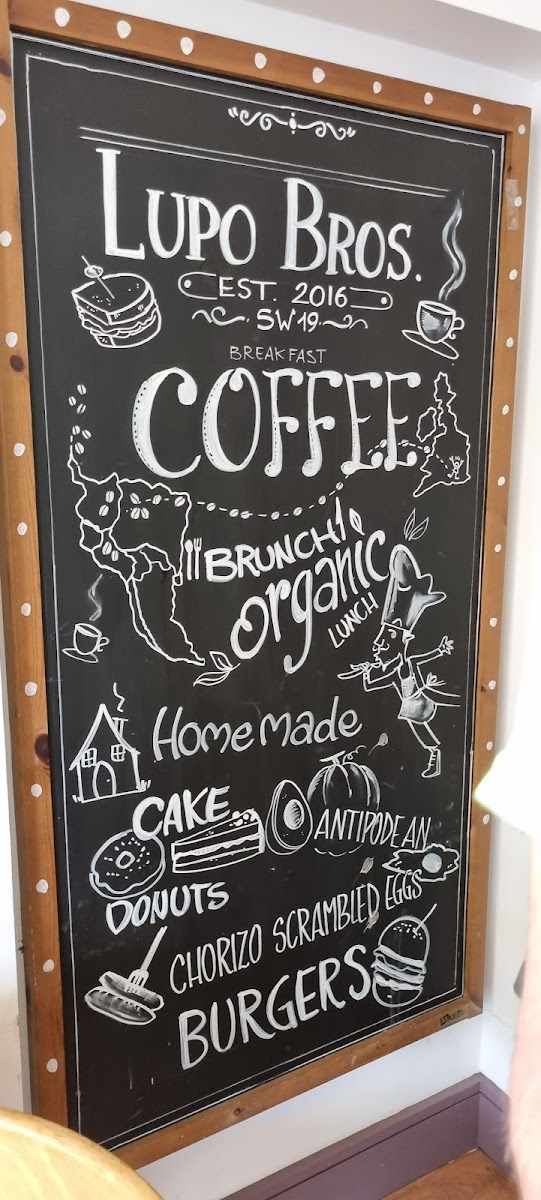 LUPO BROS.
EST. 2016
SW19
BREAKFAST
COFFEE
BRUNCH
organic
LUNCH
Home made
CAKE
ANTIPODEAN
DONUTS
CHORIZO SCRAMBLED EGGS
BURGERS